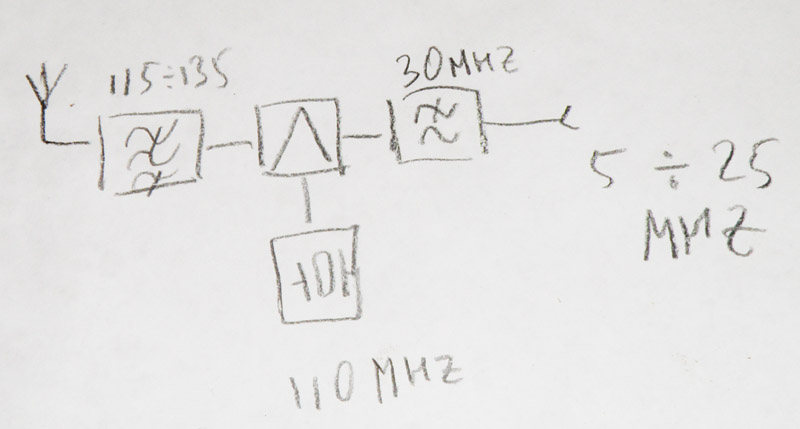 115÷135
30MHZ
5 ÷ 25
MHZ
110 MHZ